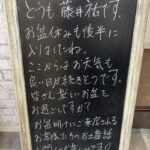 どうも藤井祐です。
お盆休みも後半に
入りましたね。
ここからはお天気も
良い日が続きそうです。
皆さん楽しいお盆を
お過ごしですか？
お盆明けにご来店される
お客様たちのお土産話